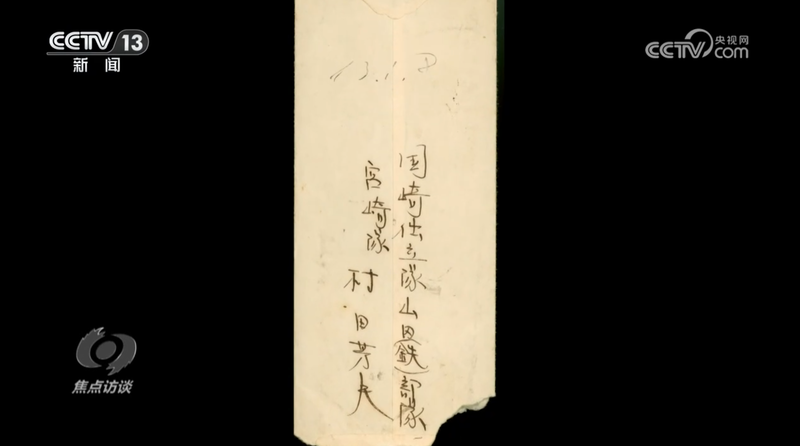 CCTV 13
新闻
央视网
CCTV.com
13.1.8
国崎支隊山田(鉄)部隊
宮崎隊
村田芳夫
焦点访谈